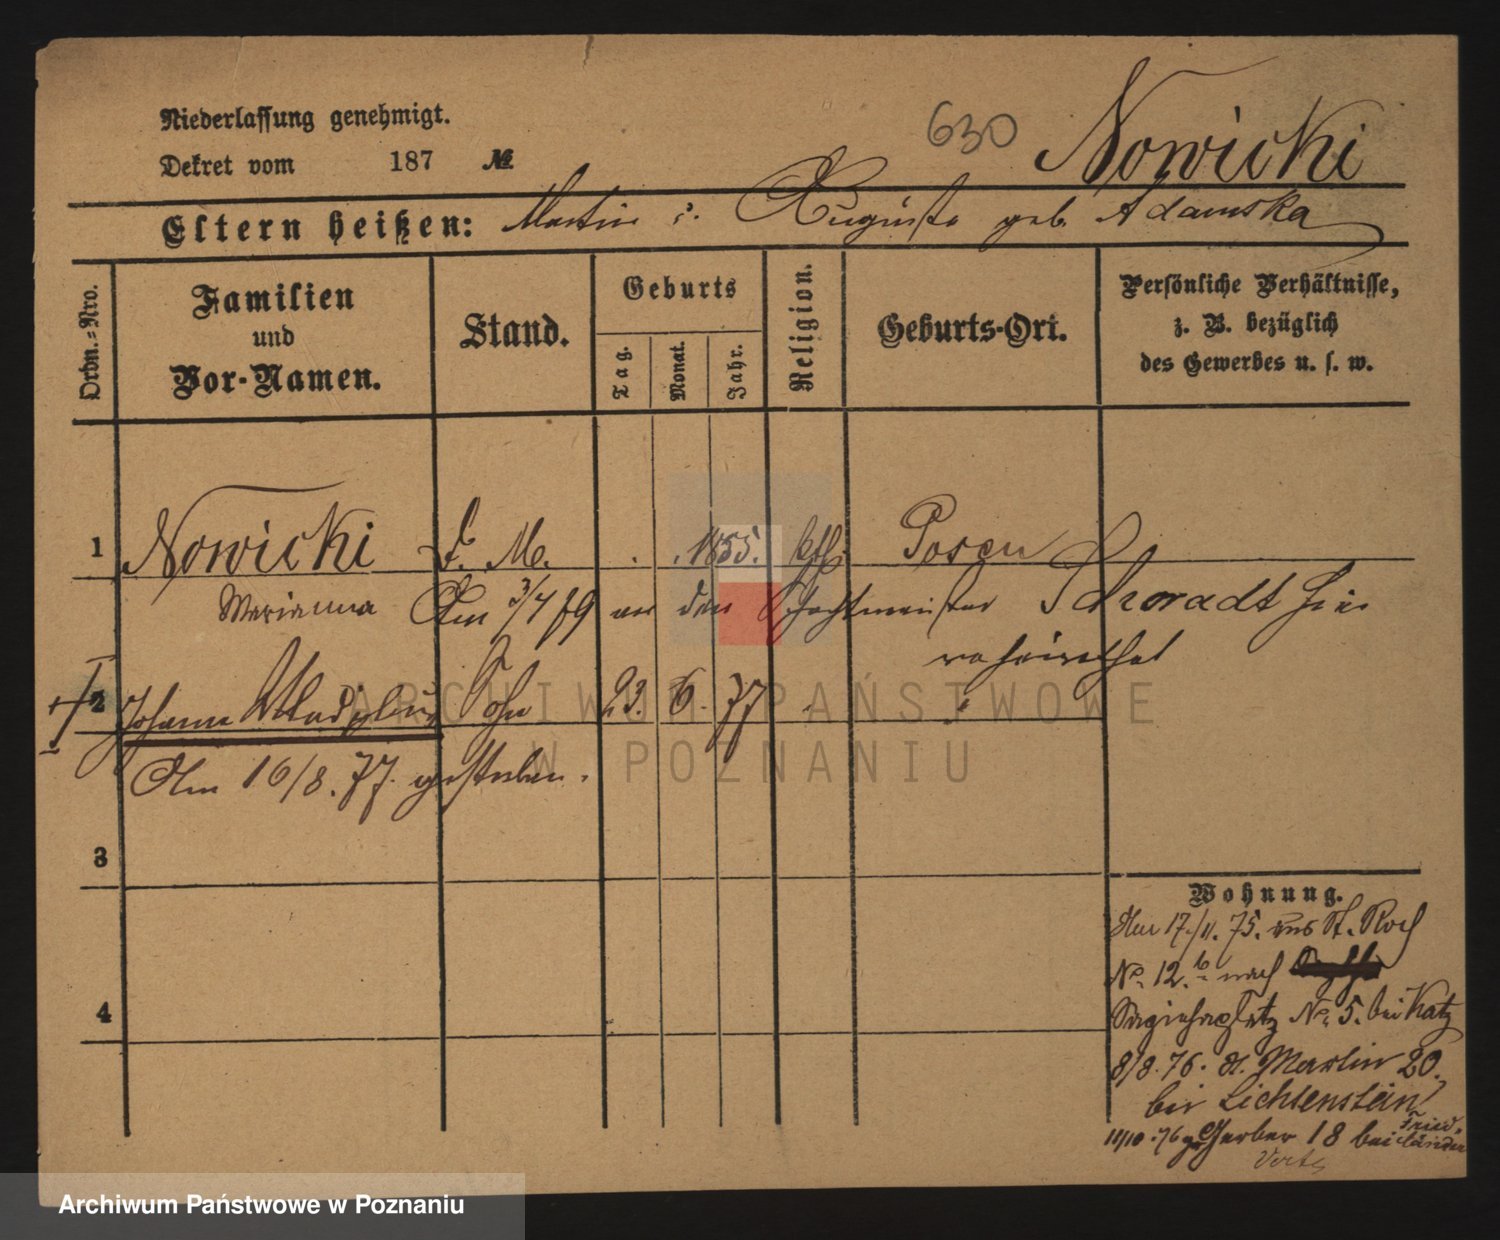 Niederlassung genehmigt.
630 Nowicki
Dekret vom 187 №
Eltern heißen: Martin u. Auguste geb. Adamska
Ordn.-Nro.
Familien und Vor-Namen.
Stand.
Geburts
Tag.
Monat.
Jahr.
Religion.
Geburts-Ort.
Persönliche Verhältnisse,
z. B. bezüglich
des Gewerbes u. s. w.
1 Nowicki d. M. . . 1855. kth. Posen
Marianna Am 3/4 79 an den Schachtmeister Schoradt hier
verheirathet
2 Johann Sohn 23. 6. 77 " "
Am 16/8. 77. gestorben.
3
4
Wohnung.
Am 17./11. 75. aus St. Roch
No. 12.b nach
Sapiehaplatz No. 5. bei Katz
8/8. 76. St. Martin 20.
bei Lichtenstein
11/10. 76 Gerber 18 bei Friedländer
Verte
ARCHIWUM PAŃSTWOWE
W POZNANIU
Archiwum Państwowe w Poznaniu